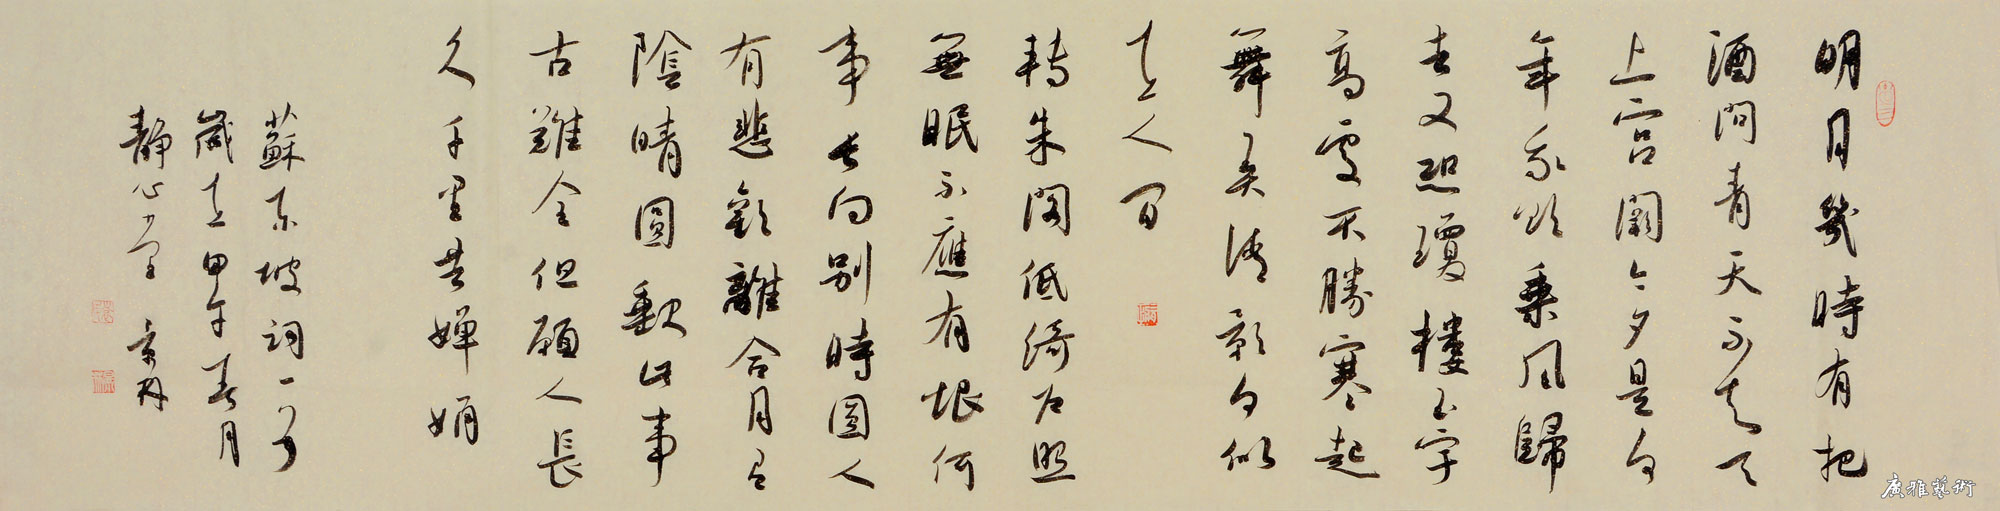 明月幾時有把
酒問青天不知天
上宮闕今夕是何
年我欲乘風歸
去又恐瓊樓玉宇
高處不勝寒起
舞弄清影何似
在人間
轉朱閣低綺戶照
無眠不應有恨何
事長向別時圓人
有悲歡離合月有
陰晴圓缺此事
古難全但願人長
久千里共嬋娟
蘇東坡詞一首
歲在甲午春月
靜心堂
廣雅藝術